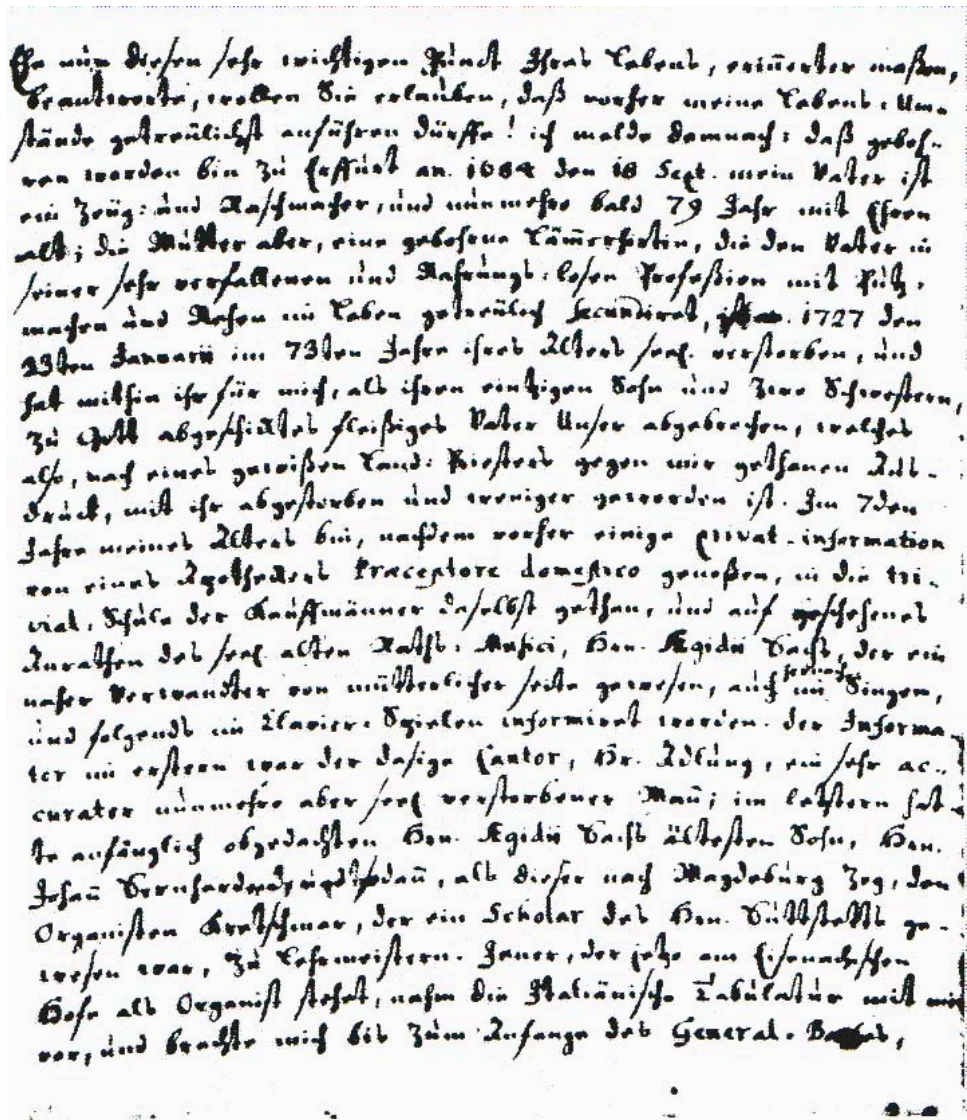 Ehe nun diesen sehr wichtigen Punct Ihres Lebens, erinnerter maßen,
beantworte, wollen Sie erlauben, daß vorher meine Lebens-Um-
stände getreülichst anführen dürffe! ich melde demnach: daß geboh-
ren worden bin zu Erffurt an. 1684 den 18 Sept. mein Vater ist
ein Zeüg- und Raschmacher, und nunmehro bald 79 Jahr mit Ehren
alt; die Mutter aber, eine gebohrne Lämmerhirtin, die den Vater in
seiner sehr verfallenen und Nahrungs-losen Profeßion mit Putz-
machen und Nehen im Leben getreülich secundiret, ist an. 1727 den
23ten Januarii im 73ten Jahre ihres Alters seel. verstorben, und
hat mithin ihr für mich, als ihren eintzigen Sohn und zwo Schwestern,
zu Gott abgeschicktes fleißiges Vater Unser abgebrochen, welches
also, nach eines gewißen Land-Priesters gegen mir gethanen Aus-
druck, mit ihr abgestorben und weniger geworden ist. Im 7den
Jahre meines Alters bin, nachdem vorher einige privat-information
von eines Apotheckers Præceptore domestico genoßen, in die tri-
vial-Schule der Kauffmänner daselbst gethan, und auf geschehenes
Anrathen des seel. alten Raths-Musici, Hrn. Ægidii Bachs, der ein
naher Verwandter von mütterlicher seite gewesen, auch im Singen,
und folgends im Clavier-Spielen informiret worden. der Informa-
tor im erstern war der dasige Cantor, Hr. Adlung, ein sehr ac-
curater nunmehro aber seel verstorbener Mañ; im letztern hat-
te anfänglich obgedachten Hrn. Ægidii Bachs ältesten Sohn, Hrn.
Johañ Bernharden, dañ, als dieser nach Magdeburg zog, den
Organisten Kretschmar, der ein Scholar des Hrn. Buttstetts ge-
wesen war, zu Lehrmeistern. Jener, der jetzo am Eisenachischen
Hofe als Organist stehet, nahm die Italiänische Tabulatur mit mir
vor, und brachte mich bis zum Anfange des General-Basses,